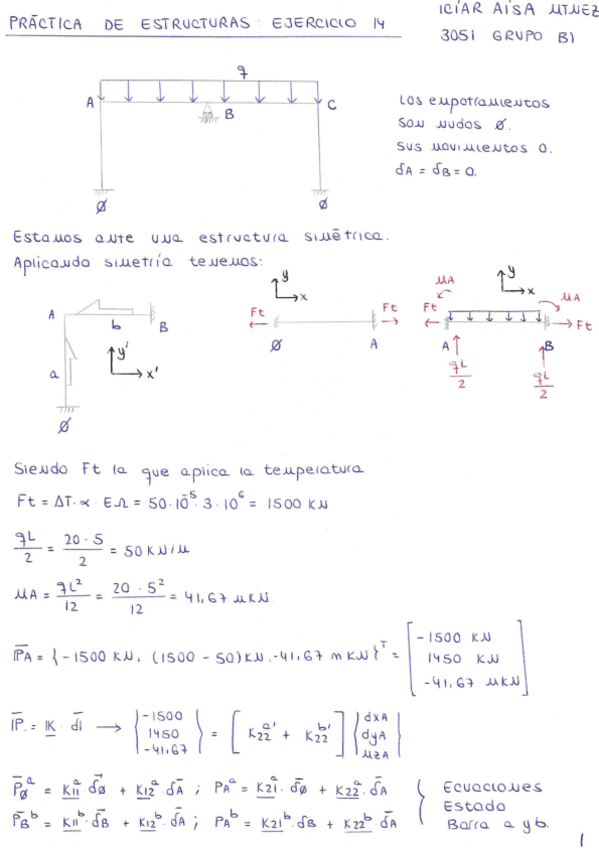 PRÁCTICA DE ESTRUCTURAS: EJERCICIO 14
ICÍAR AÍSA MTNEZ
3051 GRUPO B1
q
A
B
C
Ø
Ø
Los empotramientos
son nudos Ø.
Sus movimientos 0.
δA = δB = 0.
Estamos ante una estructura simétrica.
Aplicando simetría tenemos:
A
b
B
a
y'
x'
Ø
y
x
Ft
Ft
Ø
A
y
x
MA
MA
Ft
Ft
A
B
qL/2
qL/2
Siendo Ft la que aplica la temperatura
Ft = ΔT · α · EΩ = 50 · 10⁻⁵ · 3 · 10⁶ = 1500 KN
qL/2 = 20 · 5/2 = 50 KN/m
MA = qL²/12 = 20 · 5²/12 = 41,67 mKN
P̄A = {-1500 KN, (1500 - 50) KN, -41,67 mKN}ᵀ = [-1500 KN
1450 KN
-41,67 mKN]
IP = IK · d̄l → {-1500
1450
-41,67} = [K22ᵃ' + K22ᵇ'] {dxA
dyA
MzA}
P̄Øᵃ = K11ᵃ · d̄Ø + K12ᵃ · δ̄A ; PAᵃ = K21ᵃ · d̄Ø + K22ᵃ · δ̄A
P̄Bᵇ = K11ᵇ · δ̄B + K12ᵇ · δ̄A ; PAᵇ = K21ᵇ · δB + K22ᵇ · δ̄A
Ecuaciones
Estado
Barra a y b.
1